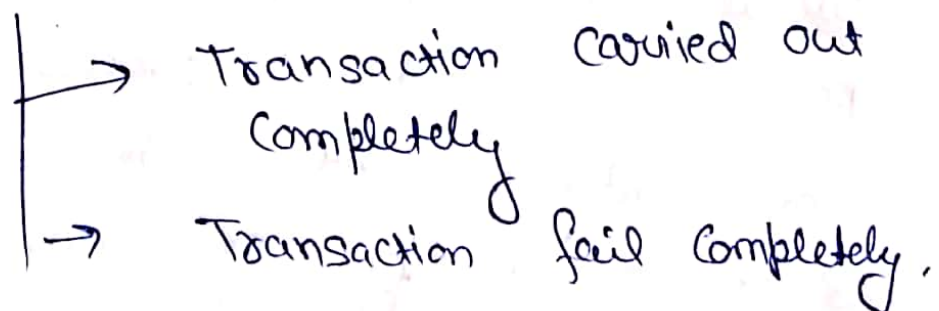 → Transaction carried out
completely
→ Transaction fail completely.